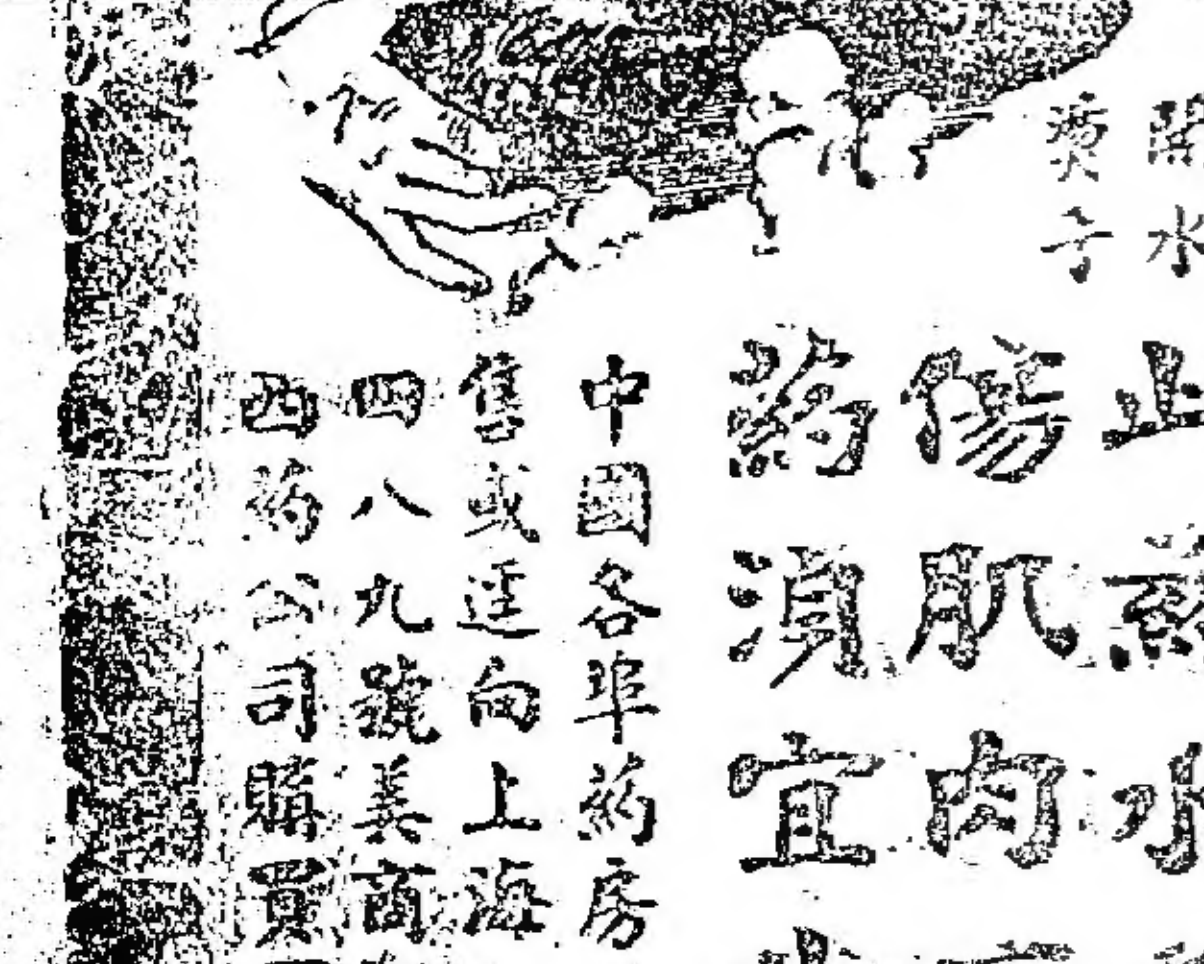 水
子
止
水
傷肌肉
药須宜
中國各埠药房
售或逕向上海
四八九號美商
西药公司購買